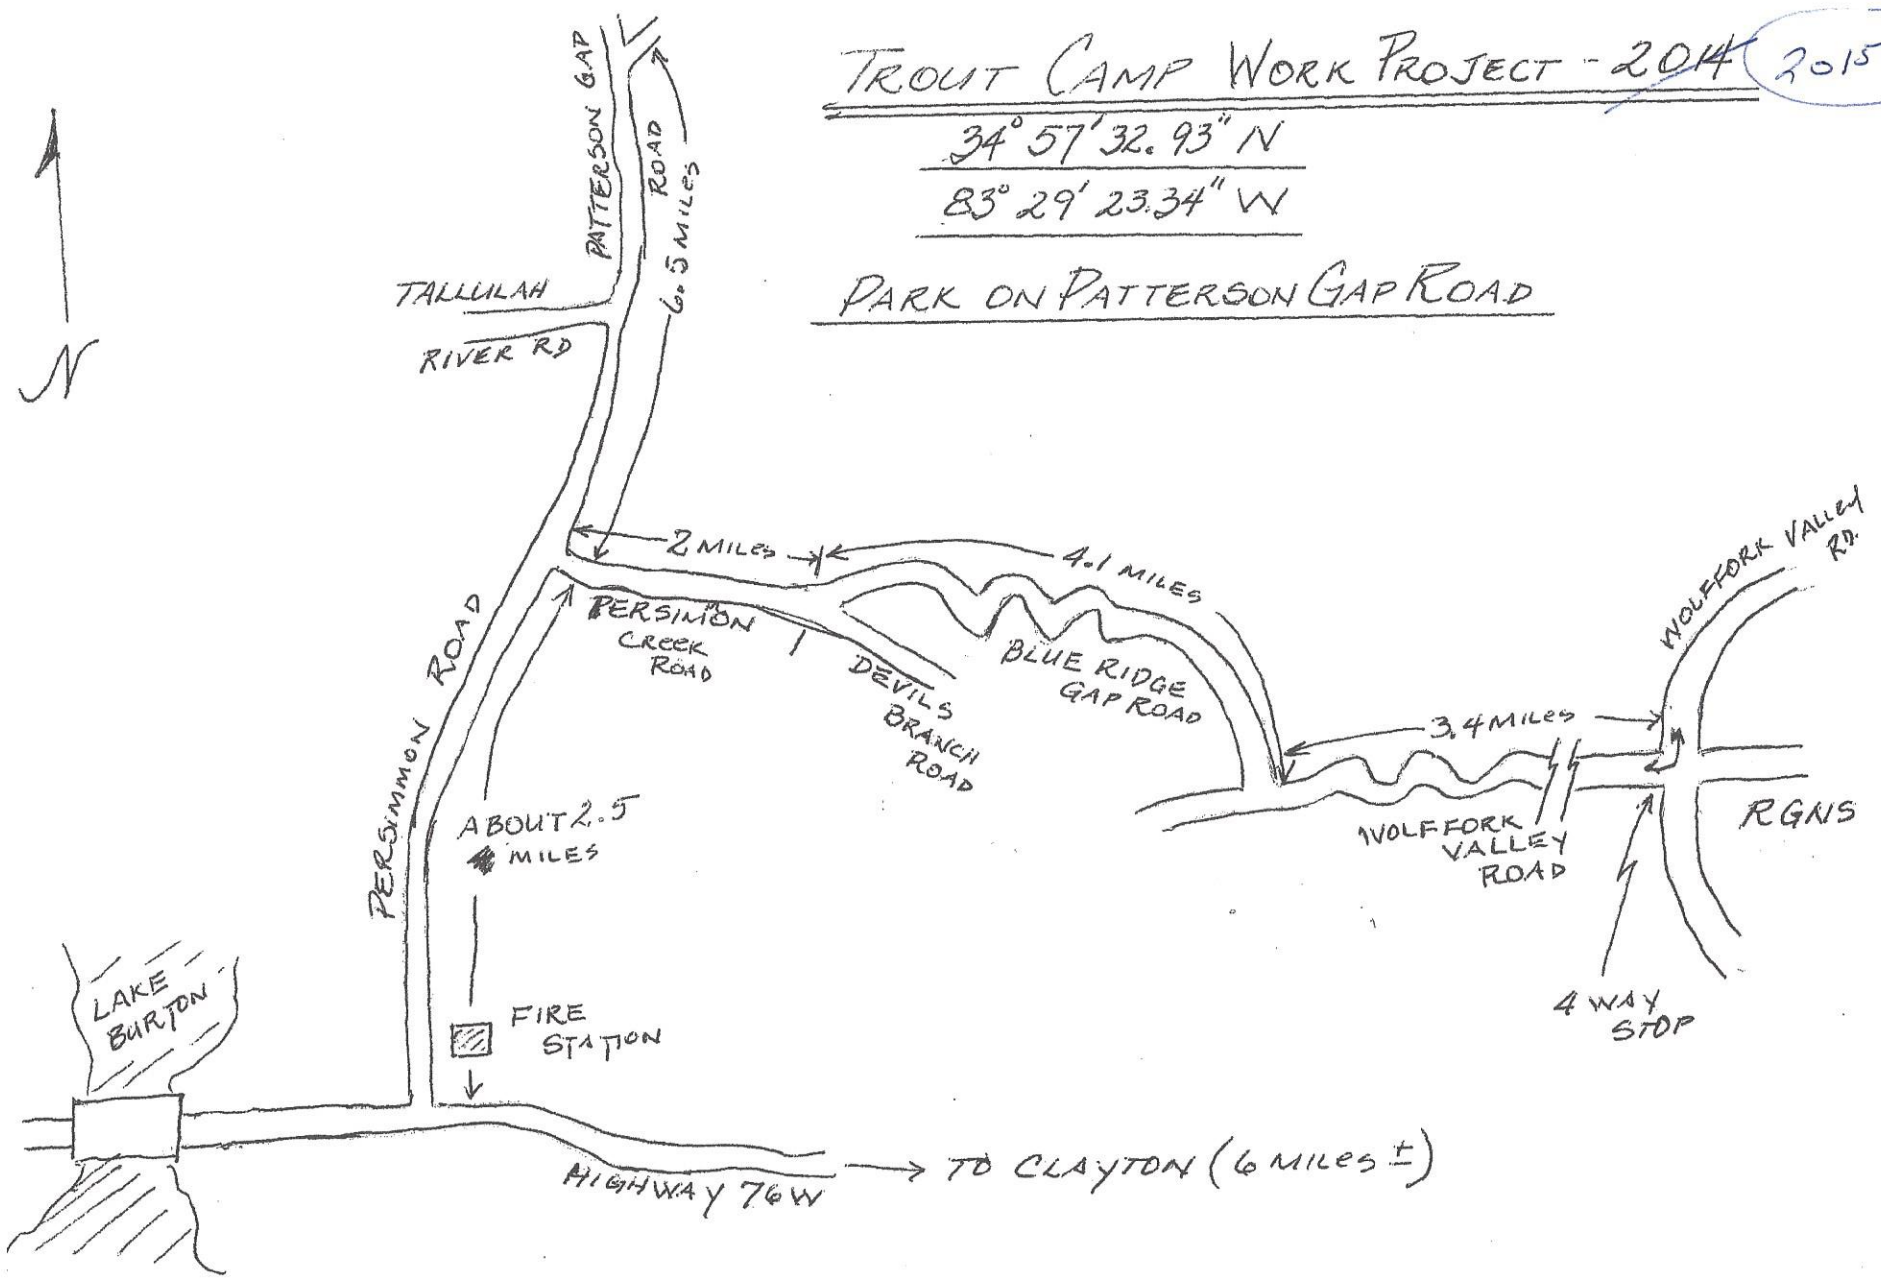 TROUT CAMP WORK PROJECT - 2014 2015
34° 57' 32.93" N
83° 29' 23.34" W
PARK ON PATTERSON GAP ROAD
N
PATTERSON GAP
ROAD
6.5 MILES
TALLULAH
RIVER RD
2 MILES
4.1 MILES
PERSIMON
CREEK
ROAD
DEVILS
BRANCH
ROAD
BLUE RIDGE
GAP ROAD
3.4 MILES
WOLFFORK VALLEY
RD.
WOLFFORK
VALLEY
ROAD
RGNS
4 WAY
STOP
PERSIMMON ROAD
ABOUT 2.5
MILES
FIRE
STATION
LAKE
BURTON
HIGHWAY 76 W
TO CLAYTON (6 MILES ±)